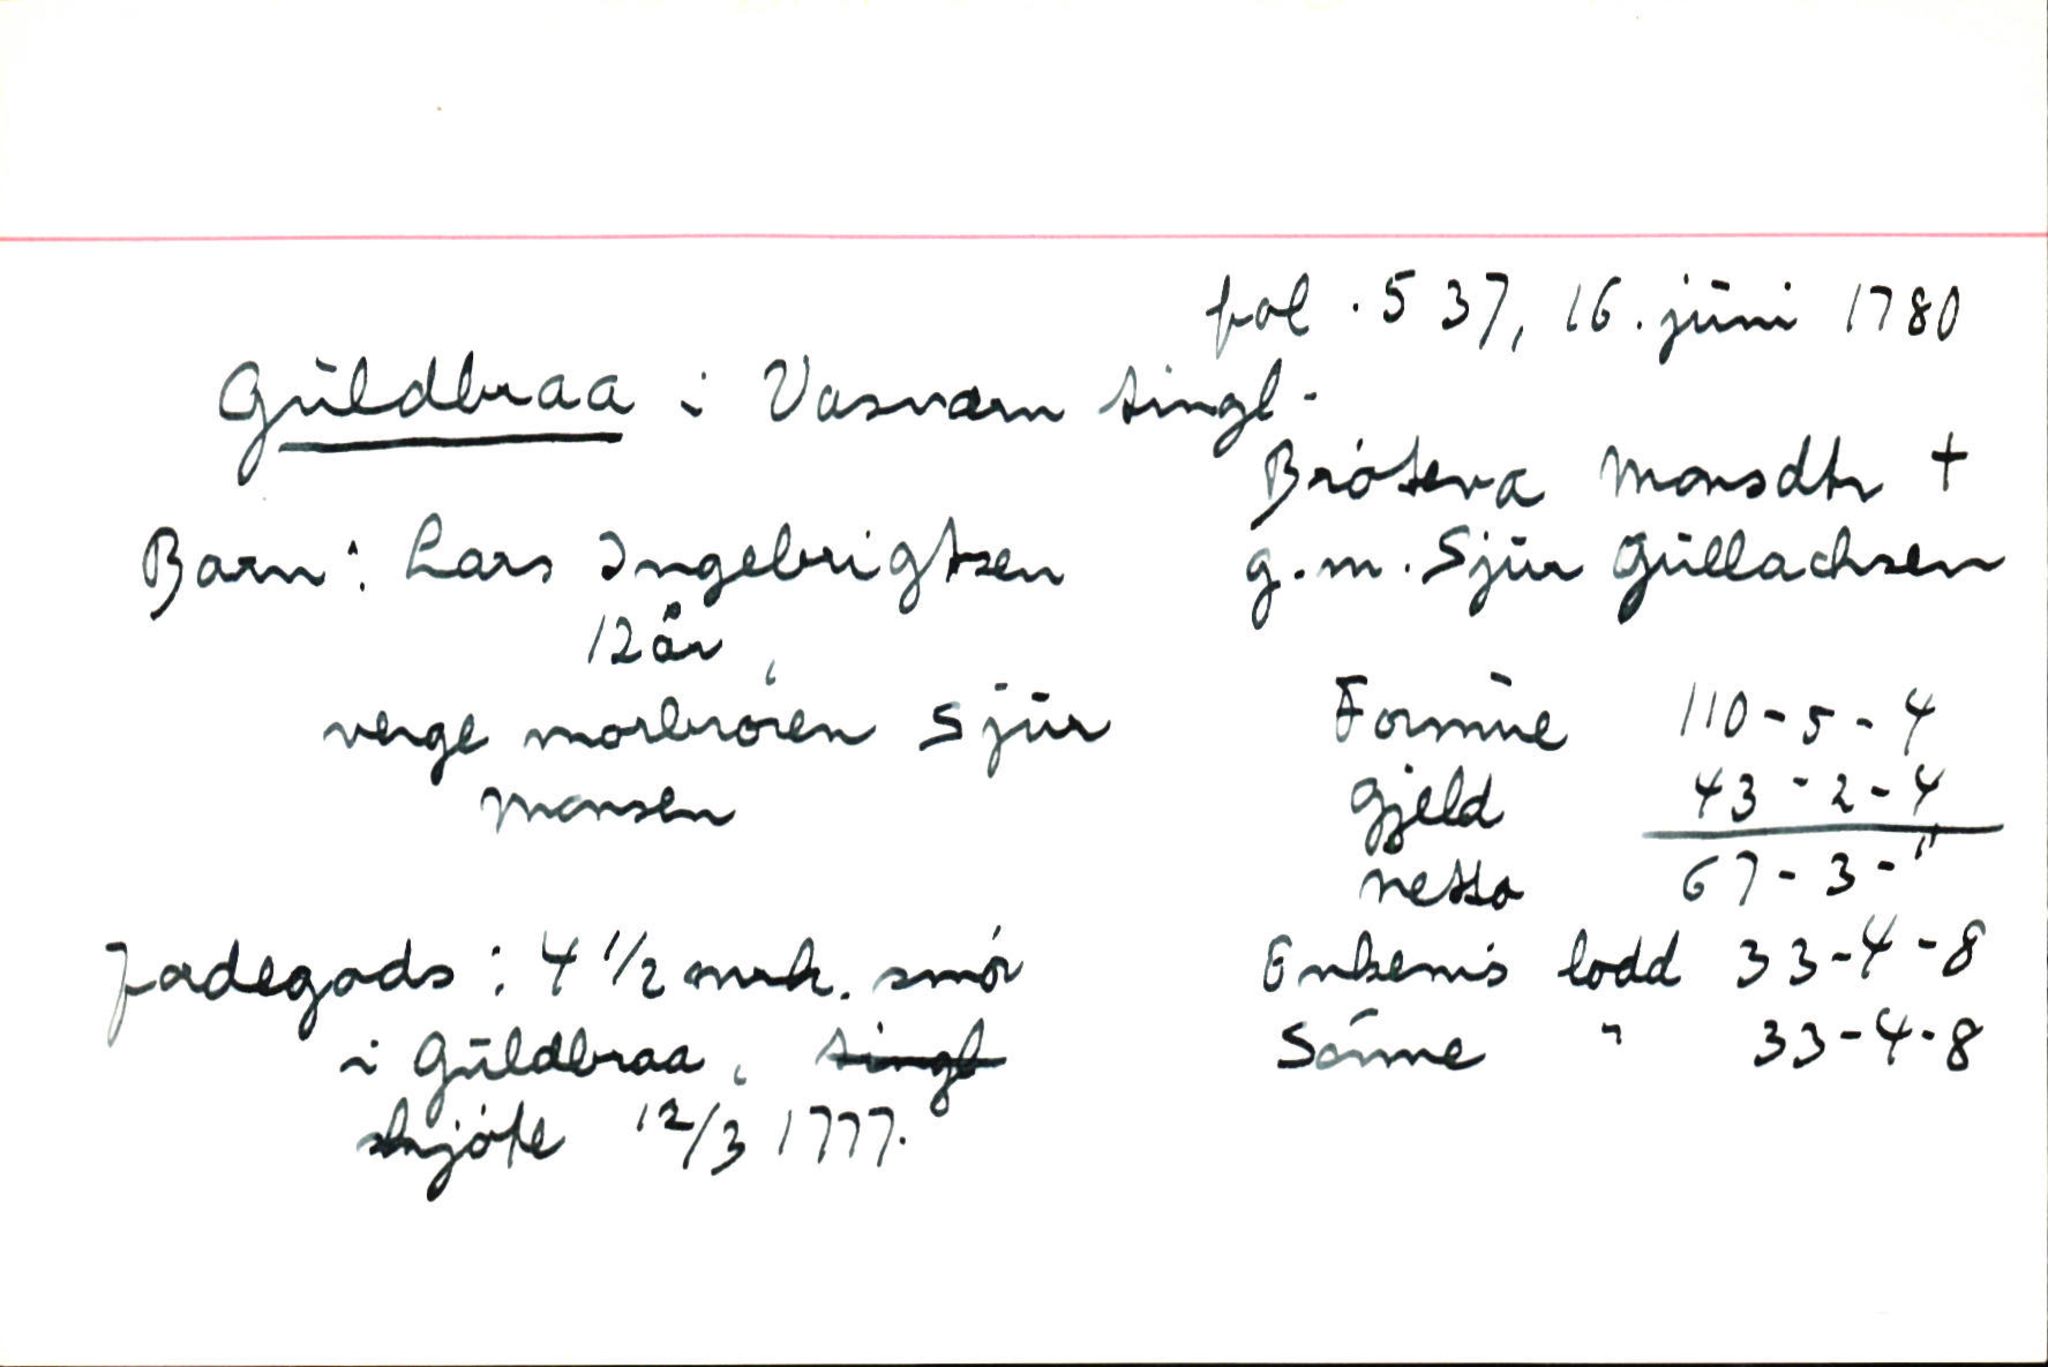 fol. 537, 16. juni 1780
Guldbraa i Vasværn tingl.
Bróteva Monsdtr +
g.m. Sjur Gullachsen
Barn: Lars Ingebrigtsen
12 år,
verge morbróren Sjur
Monsen
Formue 110-5-4
Gjeld 43-2-4
netto 67-3-"
Enkem's lodd 33-4-8
Sónne " 33-4-8
Jordegods: 4 1/2 mrk. smór
i Guldbraa, tingl
skjóte 12/3 1777.